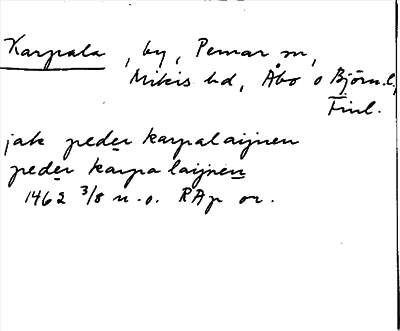 Karpala, by, Pemar sn,
Mikis hd, Åbo o Björn.l,
Finl.
jak peder karpalaijnen
peder karpalaijnen
1462 3/8 u.o. RAp or.